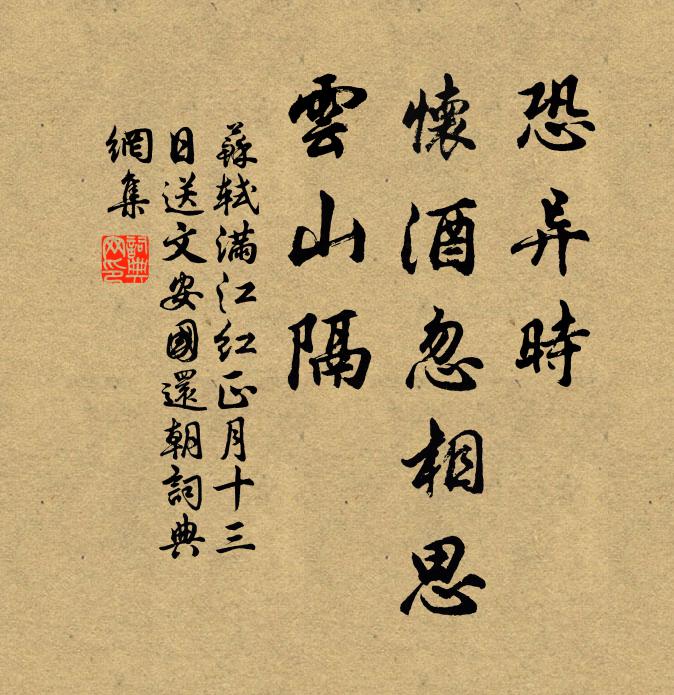 恐异時
懷酒忽相思
雲山隔
蘇軾滿江紅正月十三
日送文安國還朝詞典
網集
詞典網印